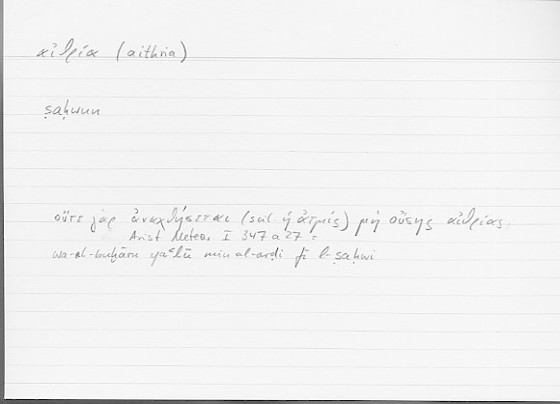 αἰθρία (aithria)
ṣaḥwun
οὔτε γὰρ ἀναχθήσεται (scil. ἡ ἀτμίς) μὴ οὔσης αἰθρίας.
Arist Meteor I 347 a 27 =
wa-al-buḫāru yaʿlū min al-arḍi fī l-ṣaḥwi